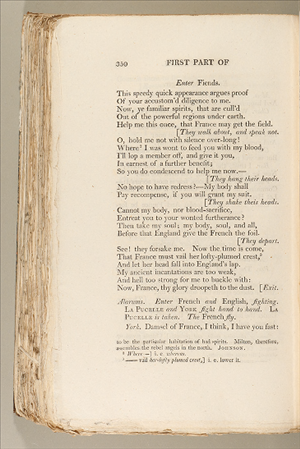 350 FIRST PART OF
Enter Fiends.
This speedy quick appearance argues proof
Of your accustom'd diligence to me.
Now, ye familiar spirits, that are cull'd
Out of the powerful regions under earth,
Help me this once, that France may get the field.
[They walk about, and speak not.
O, hold me not with silence over-long!
Where¹ I was wont to feed you with my blood,
I'll lop a member off, and give it you,
In earnest of a further benefit;
So you do condescend to help me now.—
[They hang their heads.
No hope to have redress?—My body shall
Pay recompense, if you will grant my suit.
[They shake their heads.
Cannot my body, nor blood-sacrifice,
Entreat you to your wonted furtherance?
Then take my soul; my body, soul, and all,
Before that England give the French the foil.
[They depart.
See! they forsake me. Now the time is come,
That France must vail her lofty-plumed crest,²
And let her head fall into England's lap.
My ancient incantations are too weak,
And hell too strong for me to buckle with:
Now, France, thy glory droopeth to the dust. [Exit.
Alarums. Enter French and English, fighting.
LA PUCELLE and YORK fight hand to hand. LA
PUCELLE is taken. The French fly.
York. Damsel of France, I think, I have you fast:
to be the particular habitation of bad spirits. Milton, therefore,
assembles the rebel angels in the north. JOHNSON.
¹ Where—] i. e. whereas.
² —— vail her lofty-plumed crest,] i. e. lower it.